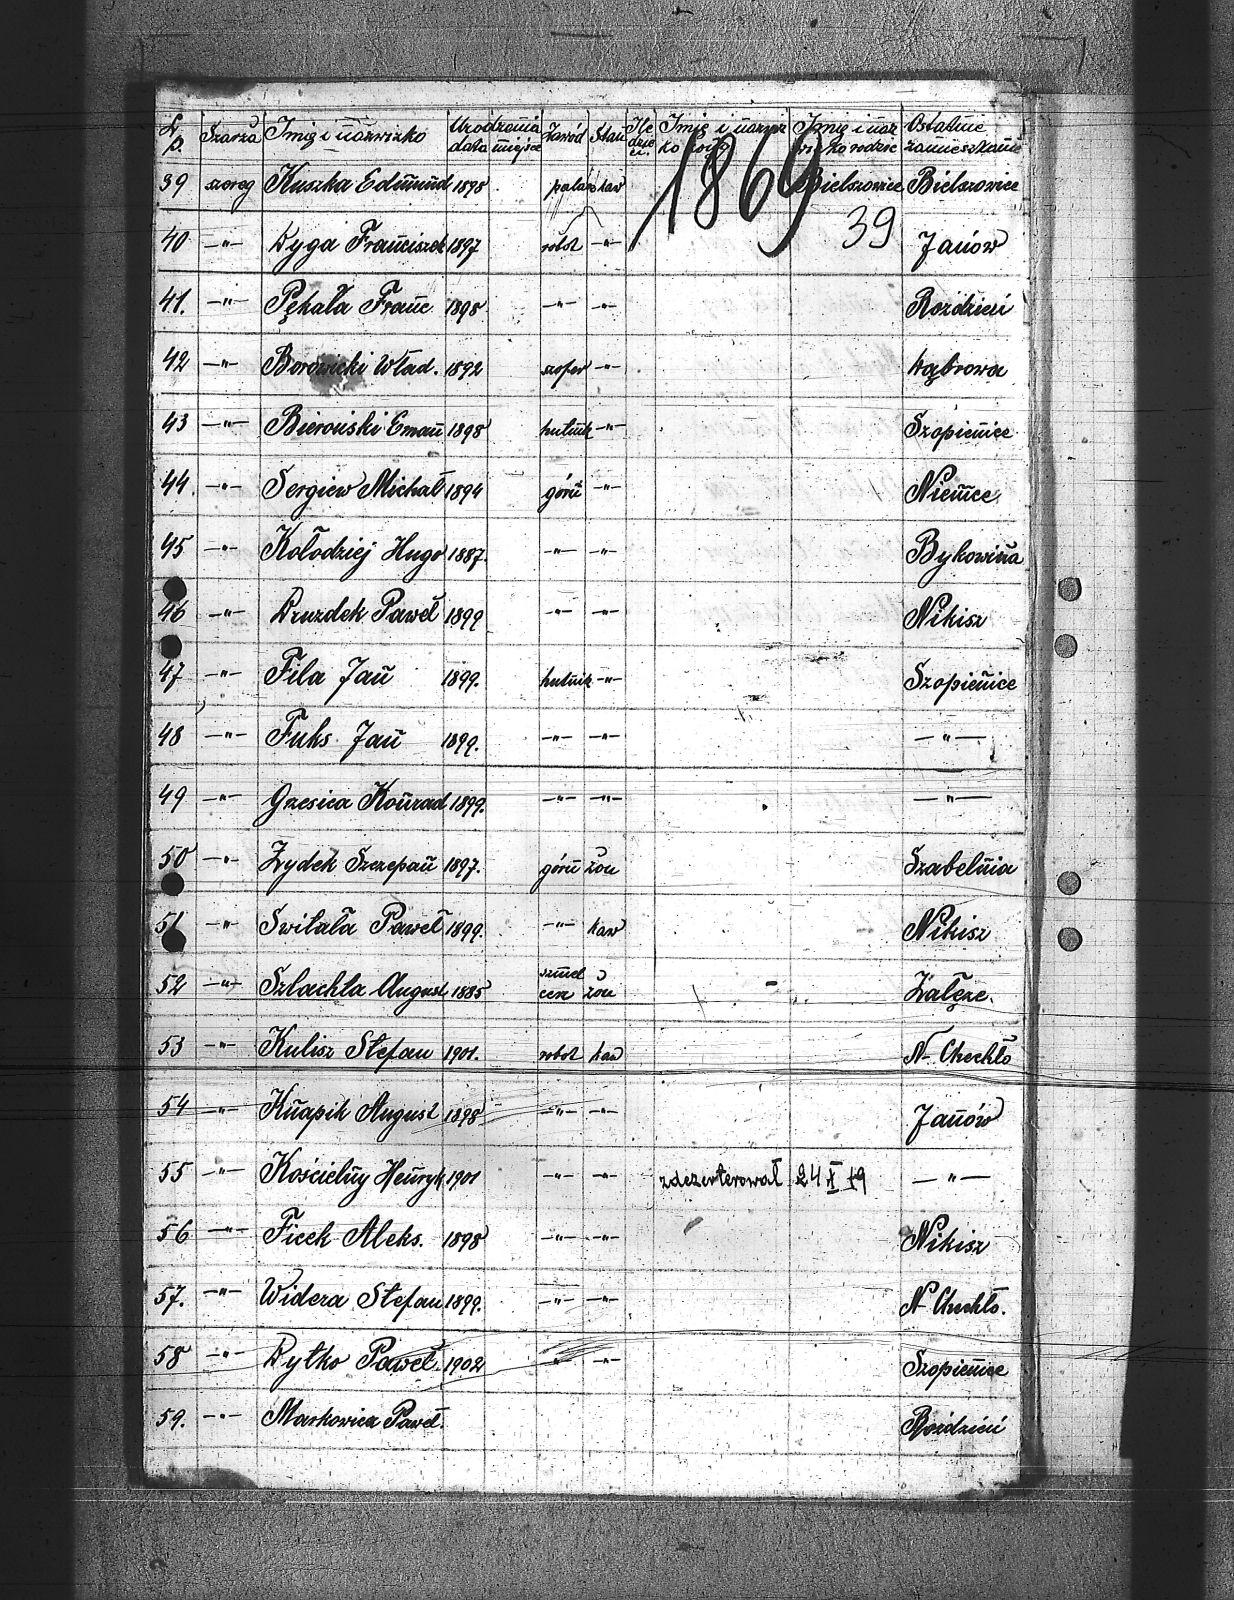 L. p. Szarża Imię i nazwisko Urodzenia data miejsce Zawód Stan Ile dzieci Imię i nazwisko żony Imię i nazwisko rodzic Ostatnie zamieszkanie
1869
39
39 szereg Kuszka Edmund 1898 palacz kaw Bielszowice Bielszowice
40 -"- Dyga Franciszek 1897 robot -"- Janów
41. -"- Pękała Franc. 1898 -"- -"- Rozdzień
42 -"- Borowicki Wład. 1892 szofer -"- Dąbrowa
43 -"- Bieroński Eman 1898 hutnik -"- Szopienice
44. -"- Sergiew Michał 1894 górn -"- Niemce
45 -"- Kołodziej Hugo 1887. -"- -"- Bykowina
46 -"- Druzdek Paweł 1899 -"- -"- Nikisz
47 -"- Fila Jan 1899. hutnik -"- Szopienice
48 -"- Fuks Jan 1899. -"- -"- -"-
49 -"- Grzesica Konrad 1899. -"- -"- -"-
50 -"- Żydek Szczepan 1897. górn żon Szabelnia
51 -"- Switała Paweł 1899. -"- kaw Nikisz
52 -"- Szlachta August 1885 szmel cerz żon Załęże.
53 -"- Kulisz Stefan 1901. robot kaw N- Chechło
54 -"- Knapik August 1898 -"- -"- Janów
55 -"- Kościelny Henryk 1901 -"- -"- zdezerterował 24 X 19 -"-
56 -"- Ficek Aleks. 1898 -"- -"- Nikisz
57. -"- Widera Stefan 1899. -"- -"- N- Chechło.
58 -"- Dytko Paweł. 1902 -"- -"- Szopienice
59. -"- Markowicz Paweł. Rozdzień